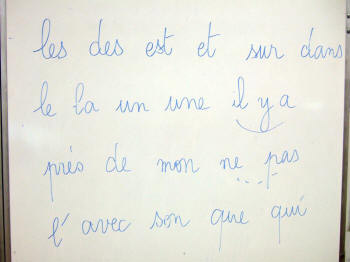 les des est et sur dans
le la un une il y a
près de mon ne pas
l' avec son que qui